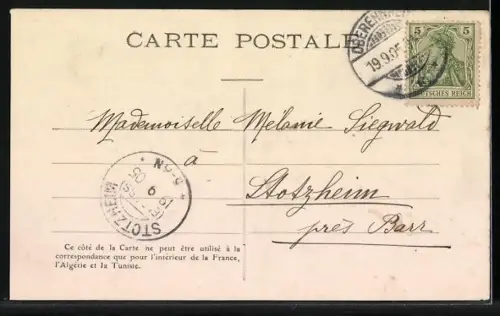 CARTE POSTALE
19.9.05
5 5
DEUTSCHES REICH
Mademoiselle Mélanie Siegwald
à
Stotzheim
près Barr
STOTZHEIM
Ce côté de la Carte ne peut être utilisé à la
correspondance que pour l'intérieur de la France,
l'Algérie et la Tunisie.